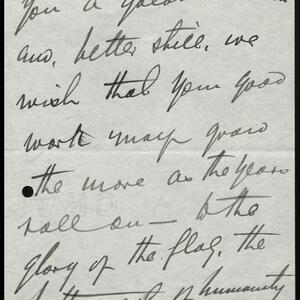 you a
and, better still, we
wish that your good
work may grow
the more as the years
roll on — to the
glory of the flag, the
of humanity